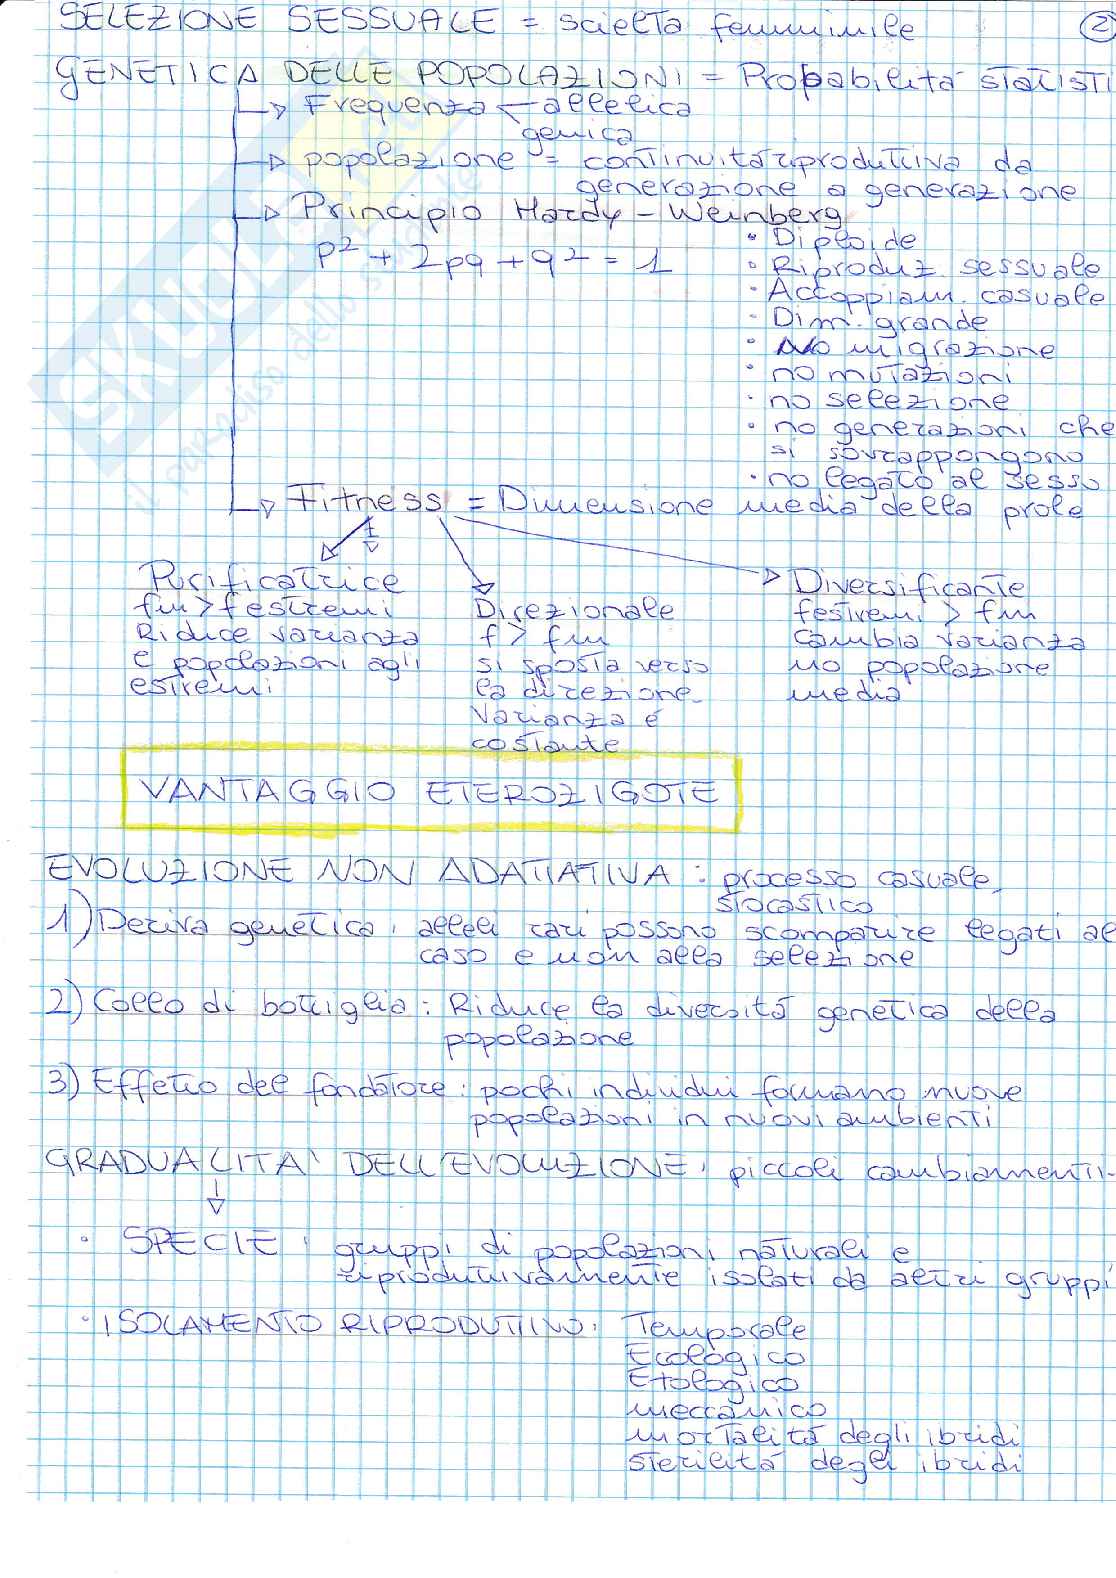 SELEZIONE SESSUALE = scielta femminile
2
GENETICA DELLE POPOLAZIONI = Probabilità statisti
Frequenza allelica
genica
popolazione = continuità riproduttiva da
generazione a generazione
Principio Hardy-Weinberg
p² + 2pq + q² = 1
• Diploide
• Riproduz. sessuale
• Accoppiam. casuale
• Dim. grande
• No migrazione
• no mutazioni
• no selezione
• no generazioni che
si sovrappongono
• no legato al sesso
Fitness = Dimensione media della prole
Purificatrice
fm > f estremi
Riduce varianza
e popolazioni agli
estremi
Direzionale
f > fm
si sposta verso
la direzione
Varianza è
costante
Diversificante
festremi > fm
cambia varianza
no popolazione
media
VANTAGGIO ETEROZIGOTE
EVOLUZIONE NON ADATTATIVA : processo casuale,
stocastico
1) Deriva genetica: alleli rari possono scomparire legati al
caso e non alla selezione
2) Collo di bottiglia: Riduce la diversità genetica della
popolazione
3) Effetto del fondatore: pochi individui formano nuove
popolazioni in nuovi ambienti
GRADUALITA' DELL'EVOLUZIONE: piccoli cambiamenti-
• SPECIE: gruppi di popolazioni naturali e
riproduttivamente isolati da altri gruppi
• ISOLAMENTO RIPRODUTTIVO: Temporale
Ecologico
Etologico
meccanico
mortalità degli ibridi
sterilità degli ibridi
SKUOLA.net
il paradiso dello studente